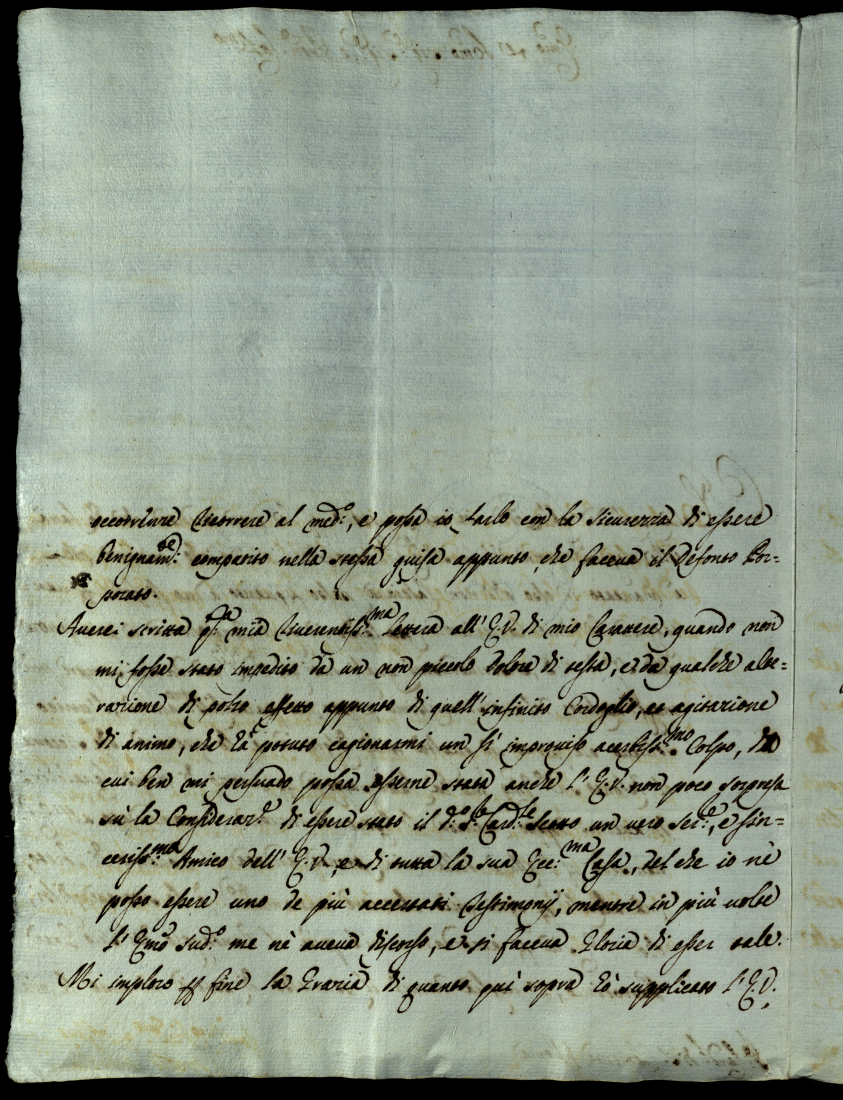 occorrenze ricorrere al med:º, e possa io farlo con la sicurezza di essere
benignam:te compatito nella stessa guisa appunto, che faceva il defonto Por=
porato.
Averei scritta q:ta mia riverentiss:ma lettera all'E.V. di mio Carattere, quando non
mi fosse stato impedito da un non piccolo dolore di testa, et da qualche alte=
razione di polso effetto appunto di quell'infinito Cordoglio, et agitazione
di animo, che hà potuto cagionarmi un sì improviso acerbiss:mo Colpo, di
cui ben mi persuado possa esserne stata anche l'E.V. non poco sorpresa
sù la Considerar:e di essere stato il d:º S:r Card:le Scotto un vero Ser:e, e sin=
ceriss:mo Amico dell'E.V. e di tutta la sua Ecc:ma Casa, del che io nè
posso essere uno de più accertati Testimonij, mentre in più volte
l'Emo sud:º me nè aveva discorso, e si faceva Gloria di esser tale.
Mi imploro p fine la Grazia di quanto quì sopra hò supplicato l'E.V.